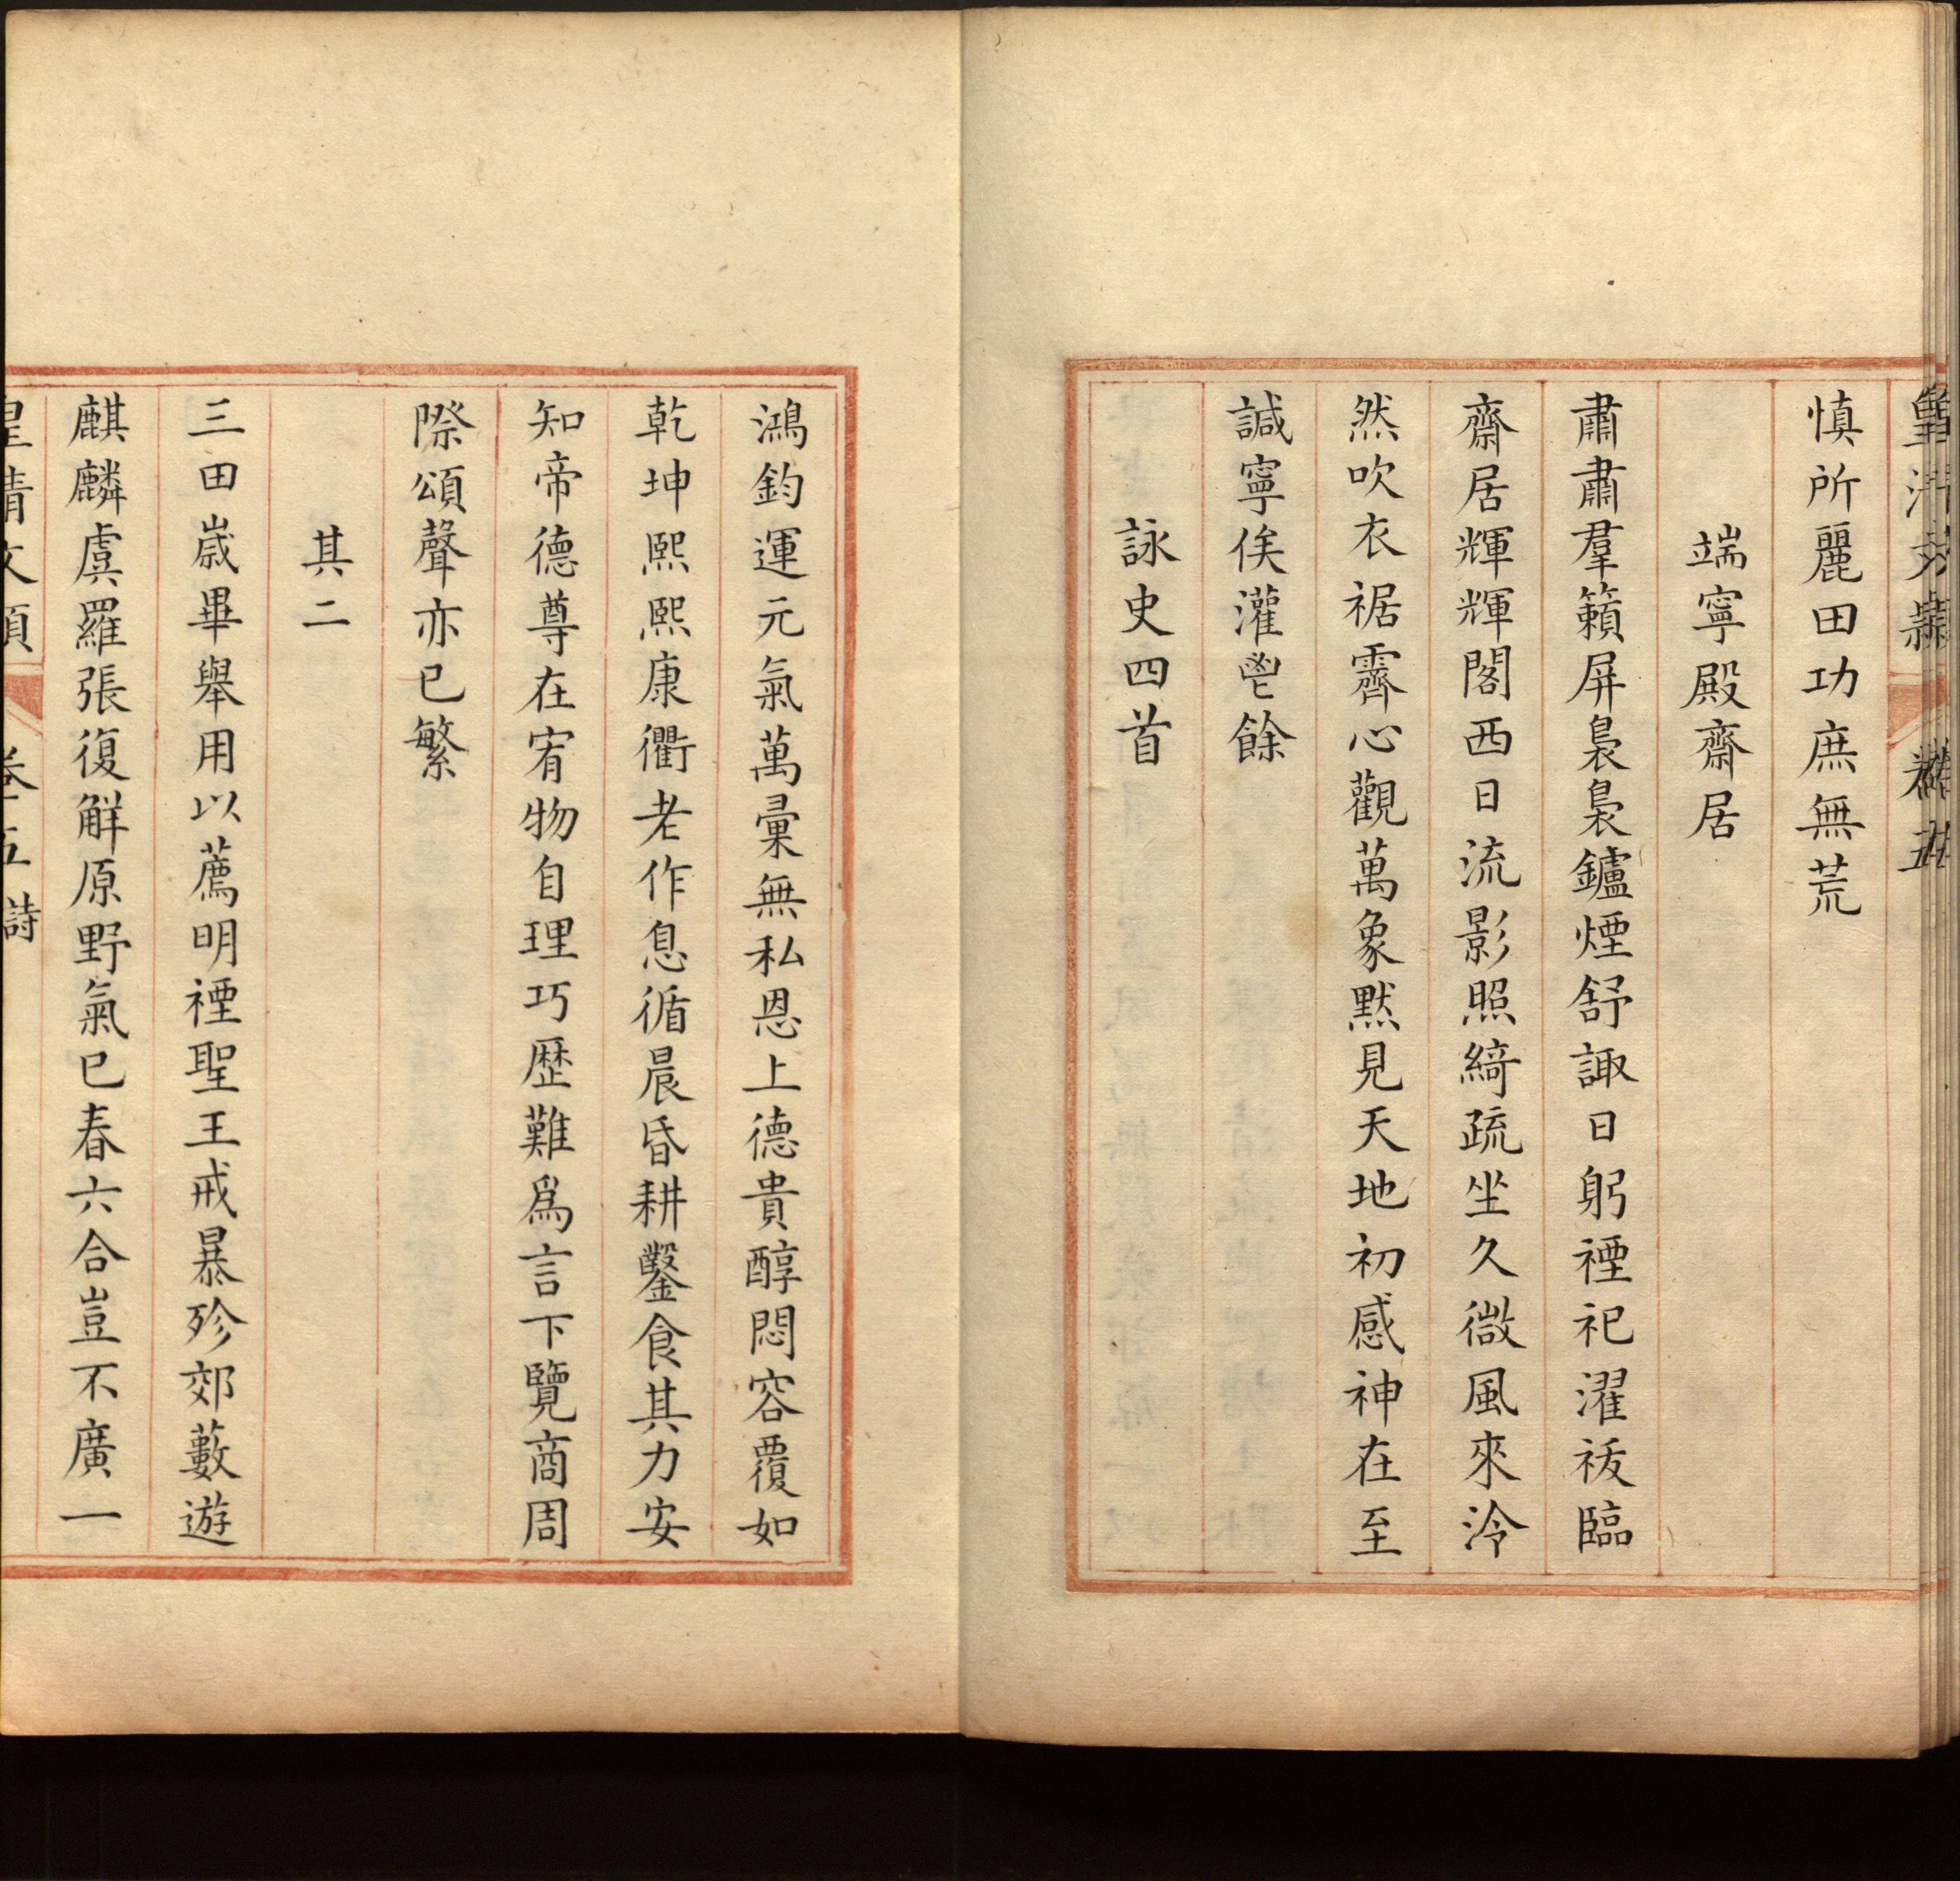 慎所麗田功庶無荒
端寧殿齋居
肅肅羣籟屏裊裊鑪煙舒諏日躬禋祀濯祓臨
齋居輝輝閣西日流影照綺疏坐久微風來泠
然吹衣裾齋心觀萬象默見天地初感神在至
諴寧俟灌鬯餘
詠史四首
鴻鈞運元氣萬彙無私恩上德貴醇悶容覆如
乾坤熙熙康衢老作息循晨昏耕鑿食其力安
知帝德尊在宥物自理巧歷難爲言下覽商周
際頌聲亦已繁
其二
三田歲畢舉用以薦明禋聖王戒暴殄郊藪遊
麒麟虞羅張復解原野氣已春六合豈不廣一
皇清文頴 卷五 詩